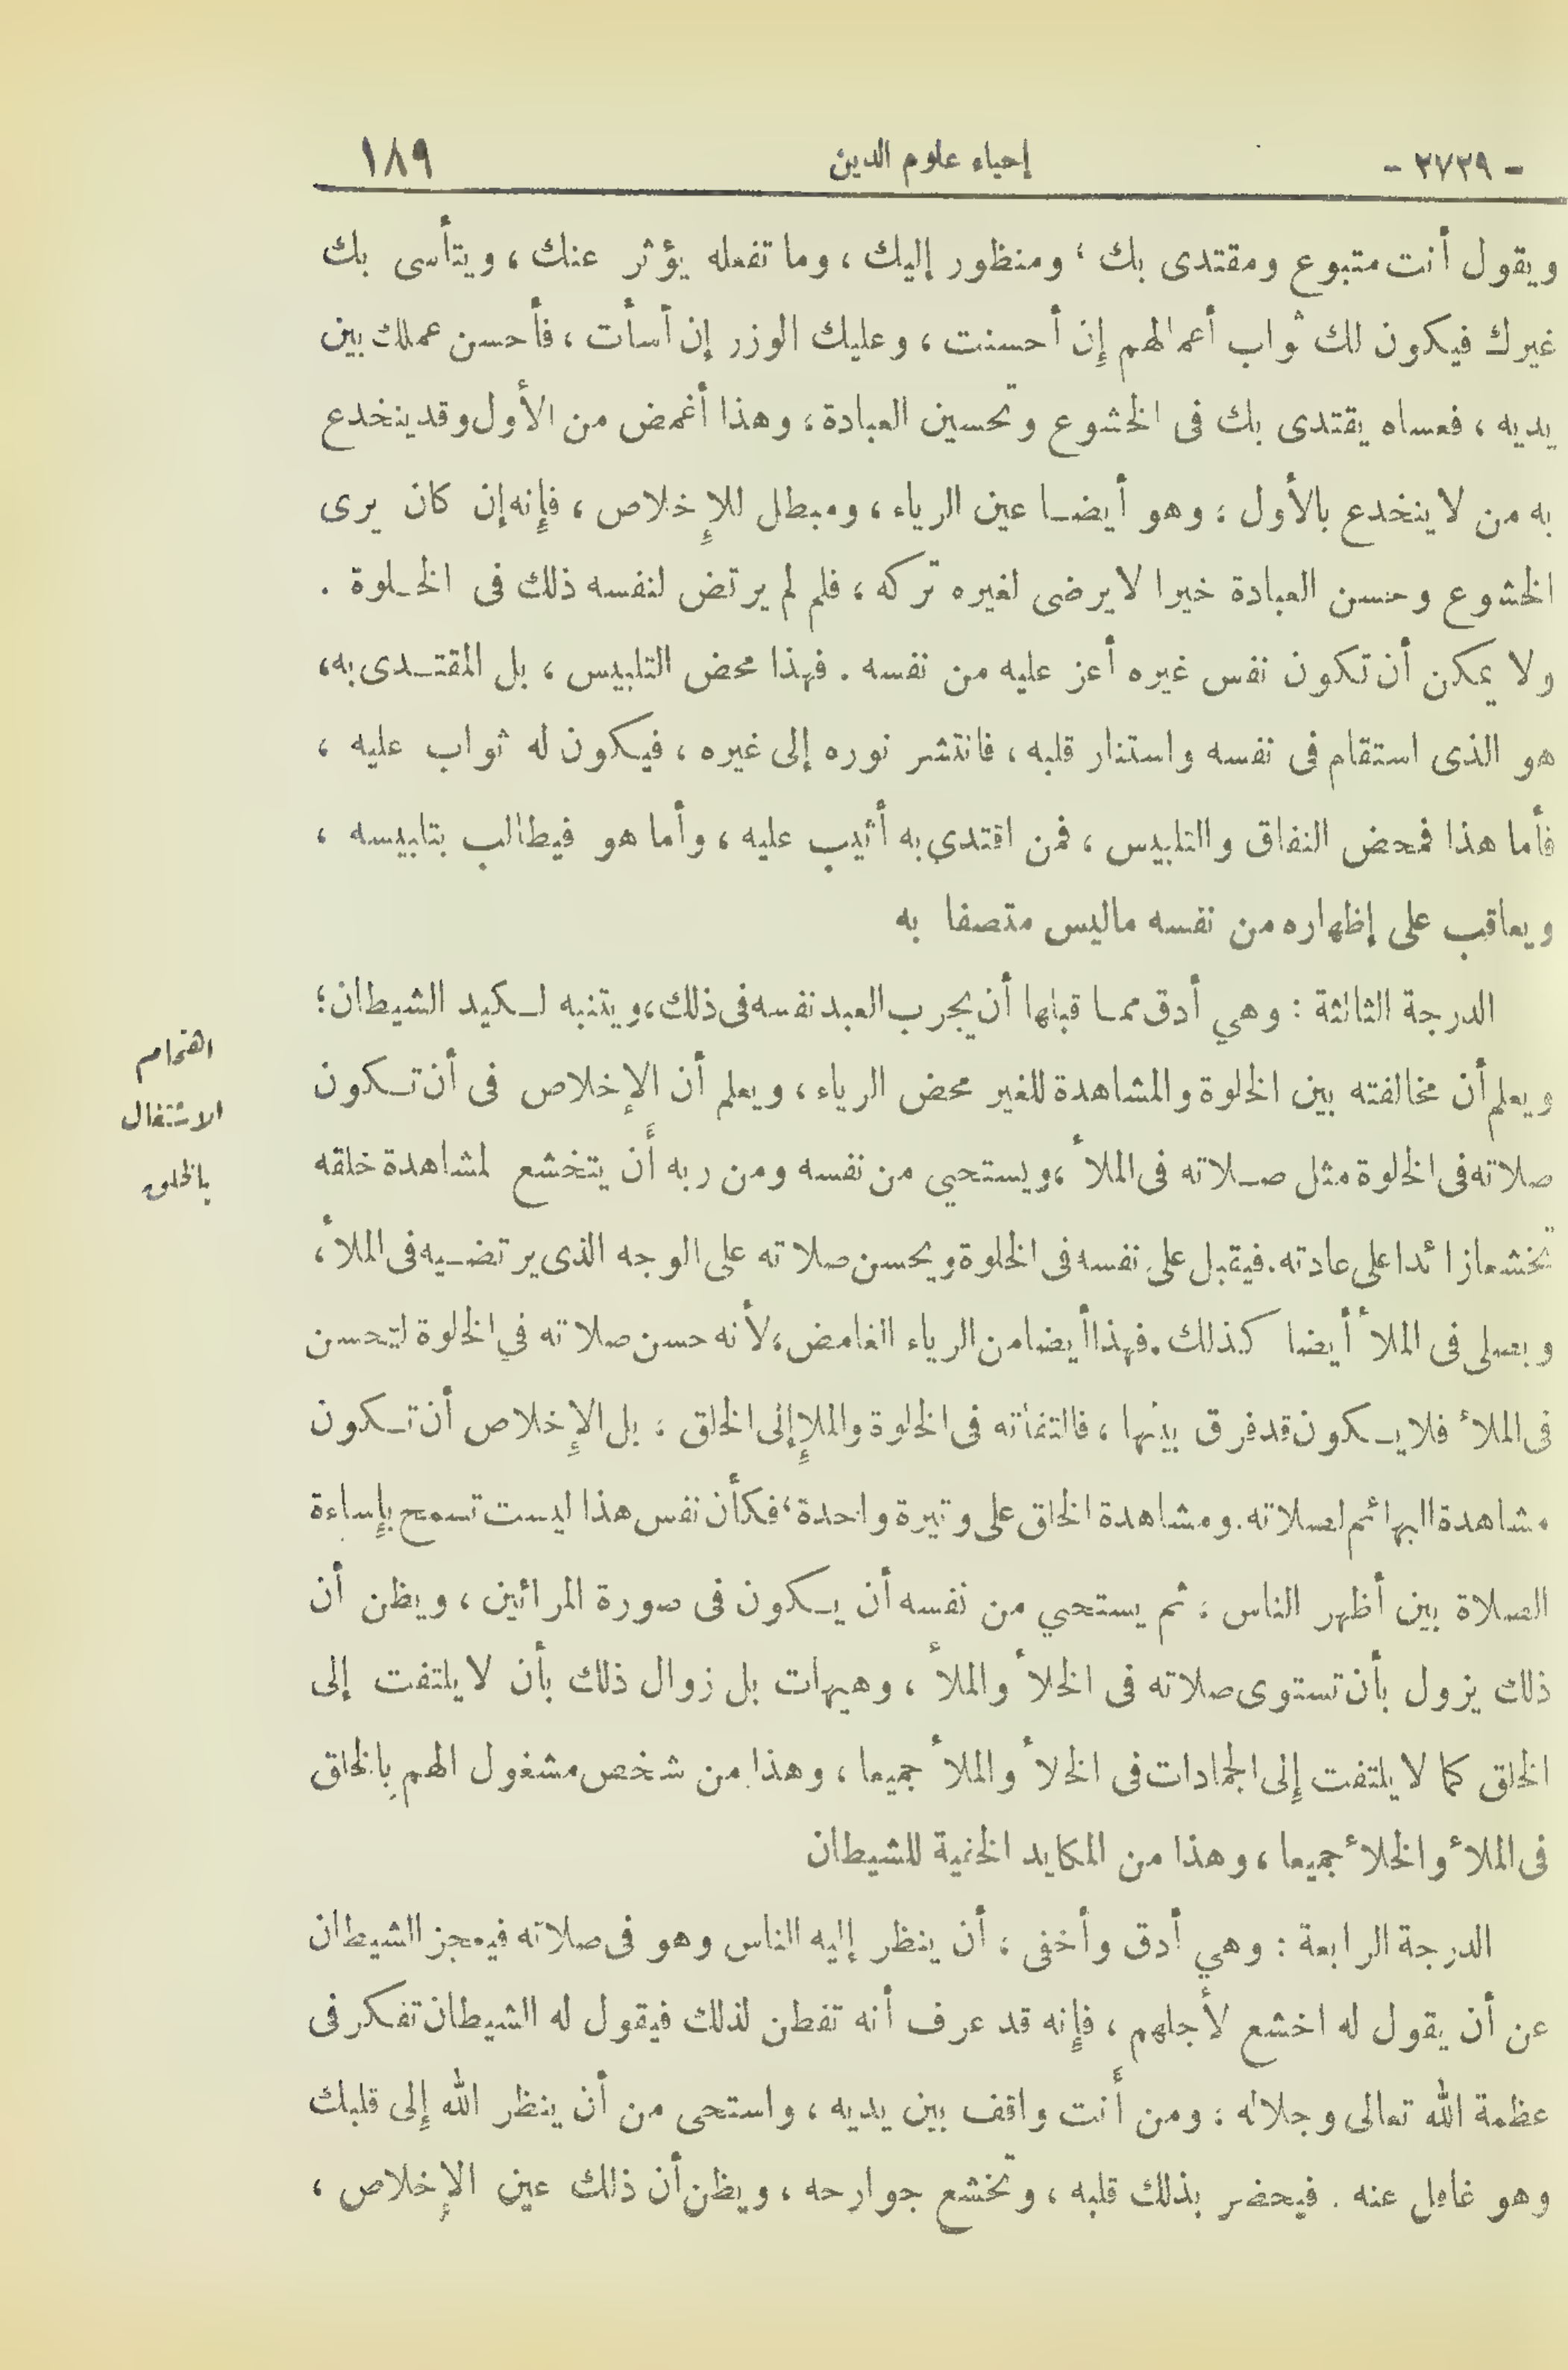 - ٢٧٢٩ - إحياء علوم الدين ١٨٩
ويقول أنت متبوع ومقتدى بك ، ومنظور إليك ، وما تفعله يؤثر عنك ، ويتأسى بك
غيرك فيكون لك ثواب أعمالهم إن أحسنت ، وعليك الوزر إن أسأت ، فأحسن عملك بين
يديه ، فعساه يقتدى بك فى الخشوع وتحسين العبادة ، وهذا أغمض من الأول وقد ينخدع
به من لا ينخدع بالأول ، وهو أيضـا عين الرياء ، ومبطل للإخلاص ، فإنه إن كان يرى
الخشوع وحسن العبادة خيرا لا يرضى لغيره تركه ، فلم لم يرتض لنفسه ذلك فى الخـلوة .
ولا يمكن أن تكون نفس غيره أعز عليه من نفسه . فهذا محض التلبيس ، بل المقتـدى به ،
هو الذى استقام فى نفسه واستنار قلبه ، فانتشر نوره إلى غيره ، فيكون له ثواب عليه ،
فأما هذا فمحض النفاق والتلبيس ، فمن اقتدى به أثيب عليه ، وأما هو فيطالب بتلبيسه ،
ويعاقب على إظهاره من نفسه ماليس متصفا به
الدرجة الثالثة : وهي أدق ممـا قبلها أن يجرب العبد نفسه فى ذلك ، ويتنبه لـكيد الشيطان ؛
ويعلم أن مخالفته بين الخلوة والمشاهدة للغير محض الرياء ، ويعلم أن الإخلاص فى أن تـكون
صلاته فى الخلوة مثل صـلاته فى الملأ ، ويستحيي من نفسه ومن ربه أن يتخشع لمشاهدة خلقه
تخشعا زائدا على عادته . فيقبل على نفسه فى الخلوة ويحسن صلاته على الوجه الذى يرتضـيه فى الملأ ،
ويصلى فى الملأ أيضا كذلك . فهذا أيضا من الرياء الغامض ، لأنه حسن صلاته في الخلوة لتحسن
فى الملأ فلا يـكون قد فرق بينهما ، فالتفاته فى الخلوة والملإ إلى الخلق ، بل الإخلاص أن تـكون
مشاهدة البهائم لصلاته . ومشاهدة الخلق على وتيرة واحدة ، فكأن نفس هذا ليست تسمح بإساءة
الصلاة بين أظهر الناس ، ثم يستحي من نفسه أن يـكون فى صورة المرائين ، ويظن أن
ذلك يزول بأن تستوى صلاته فى الخلأ والملأ ، وهيهات بل زوال ذلك بأن لا يلتفت إلى
الخلق كما لا يلتفت إلى الجمادات فى الخلأ والملأ جميعا ، وهذا من شخص مشغول الهم بالخلق
فى الملأ والخلأ جميعا ، وهذا من المكايد الخفية للشيطان
الدرجة الرابعة : وهي أدق وأخفى ، أن ينظر إليه الناس وهو فى صلاته فيعجز الشيطان
عن أن يقول له اخشع لأجلهم ، فإنه قد عرف أنه تفطن لذلك فيقول له الشيطان تفكر فى
عظمة الله تعالى وجلاله ، ومن أنت واقف بين يديه ، واستحى من أن ينظر الله إلى قلبك
وهو غافل عنه . فيحضر بذلك قلبه ، وتخشع جوارحه ، ويظن أن ذلك عين الإخلاص ،
اهتمام
الاشتغال
بالخلق